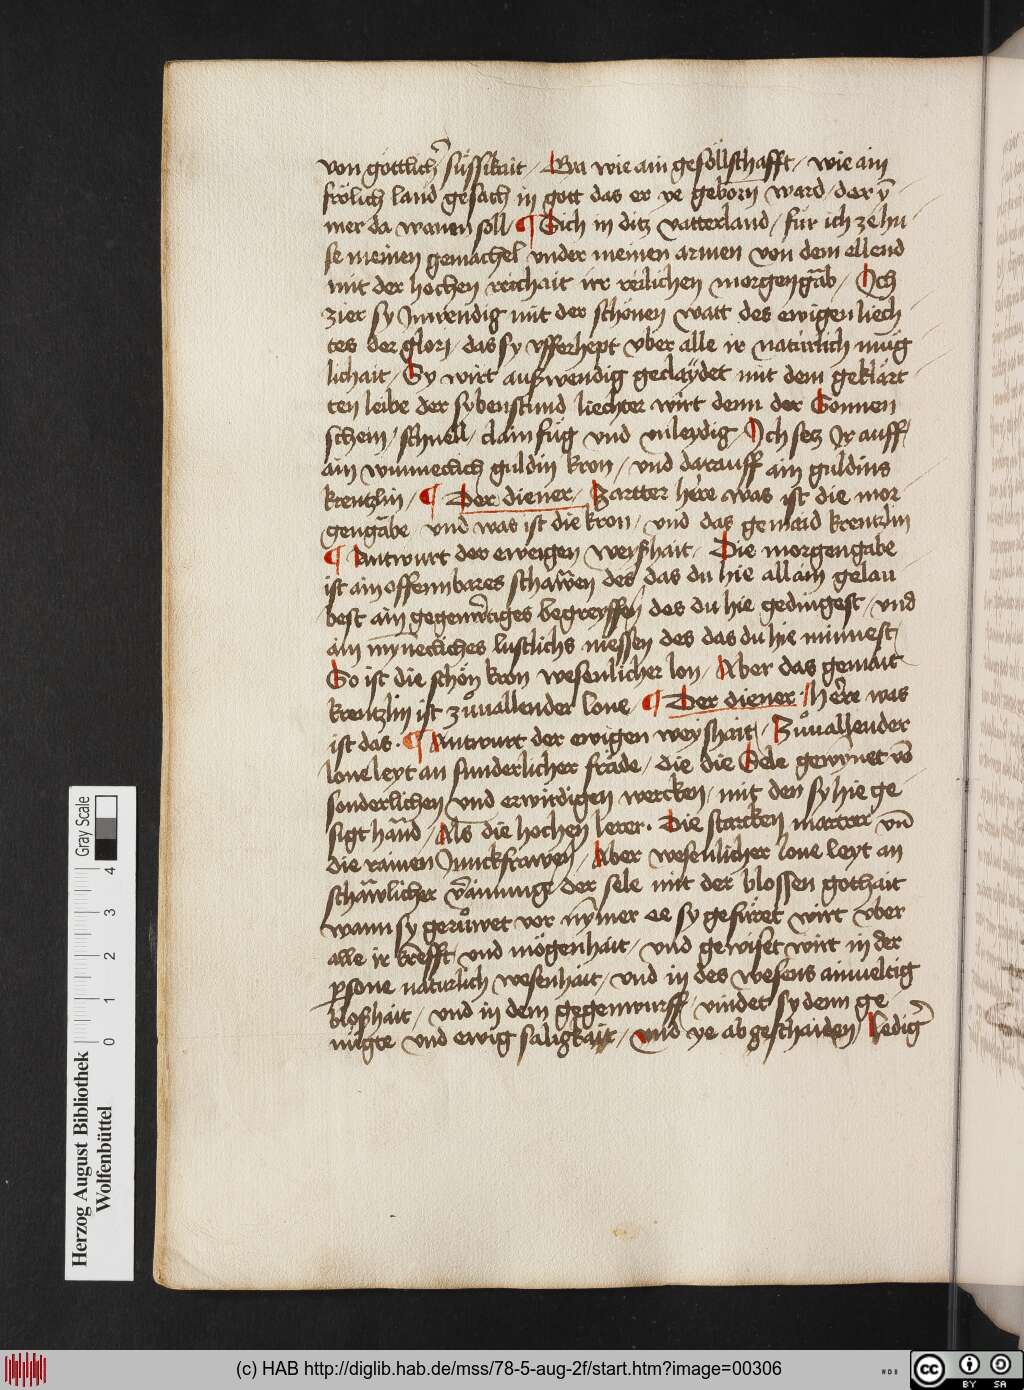 von göttlicher süssikait / Wa wie ain gesöllschafft / wie ain
frölich land gesach in gott das er ye geborn ward / der ÿ
mer da wonen soll ¶ Sich in ditz vatterland / für ich ze hu
se meinen gemachel vnder meinen armen von dem ellend
mit der hochen reichait ir reilichen morgengāb / Ich
zier sy Inwendig mit der schönen watt des ewigen liech
tes der glori / das sy vfferhept vber alle ir natürlich müg
lichait / Sy wirt außwendig geclaÿdet mit dem geklärt
ten leibe der sybenstund liechter wirt denn der Sonnen
schein / schnell / clainfüg vnd vnleydig / Ich setz Ir auff
ain wunneclich guldin kron / vnd darauff ain guldins
krentzlin / ¶ Der diener / Zartter here was ist die mor
gengābe vnd was ist die kron / vnd das gemaid krentzlin
¶ Antwurt der eweigen weißhait / Die morgengabe
ist ain offennbares schawen des das du hie allain gelau
best ain gegenwertiges begreyffen des du hie gedingest / vnd
ain mynecliches lustlichs niessen des das du hie minnest /
So ist die schön kron wesenlicher lon / Aber das gemait
krentzlin ist zůuallender lone / ¶ Der diener / here was
ist das · ¶ Antwurt der ewigen weyshait / Zůuallender
lone leyt an sunderlicher fräde / die die Sele gewynet vō
sonderlichen vnd erwirdigen wercken / mit den sy hie ge
sigt händ / Als die hochen lerer · Die starcken marter vn̄
die rainen Junckfrawen / Aber wesenlicher lone leyt an
schäwlicher v̾ainunge der sele mit der blossen gothait
wann sy gerůwet vor nymer ee sy gefüret wirt vber
alle ir krefft / vnd mögenhait / vnd gewiset wirt in der
p̱sone natürlich wesenhait / vnd in des wesens ainueltig
bloßhait / vnd in dem gegenwurff / vindet sy denn ge
nügte vnd ewig säligkait / vnd ye abgeschaiden / ledig̾
Herzog August Bibliothek
Wolfenbüttel
Gray Scale
0 1 2 3 4
(c) HAB http://diglib.hab.de/mss/78-5-aug-2f/start.htm?image=00306
WDB
cc BY SA